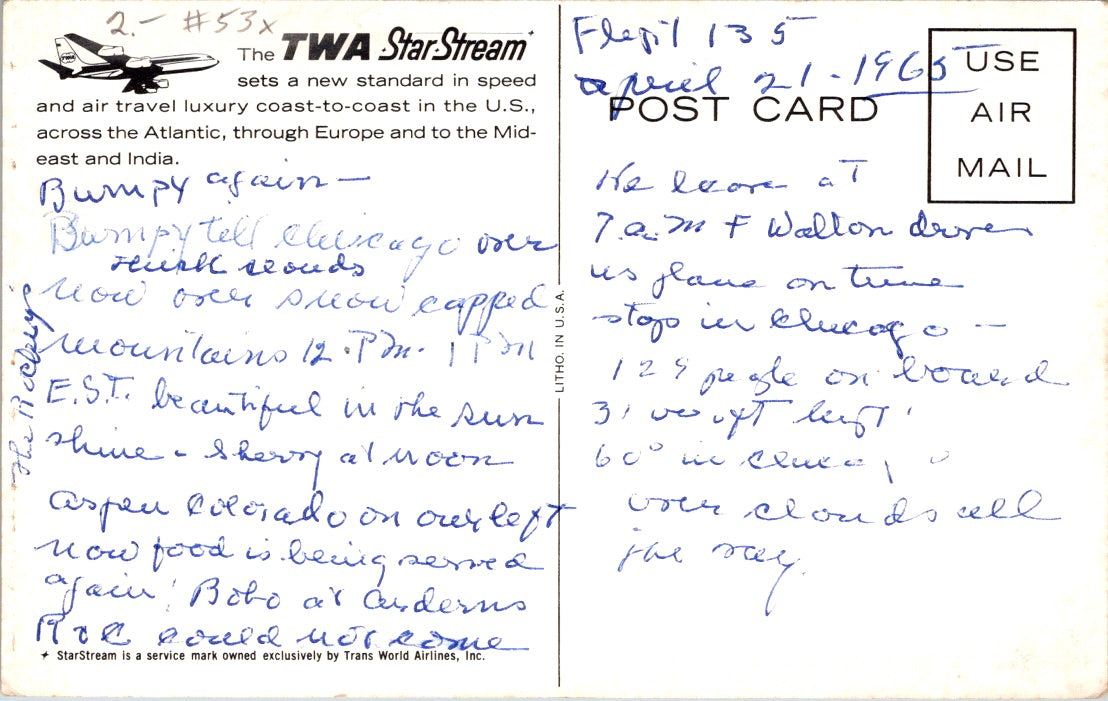 2.- #53x
The TWA StarStream+
sets a new standard in speed
and air travel luxury coast-to-coast in the U.S.,
across the Atlantic, through Europe and to the Mid-
east and India.
Bumpy again —
Bumpy till Chicago over
thick clouds
now over snow capped
mountains 12 P.M. 1 PM
The Rockeys
E.S.T. beautiful in the sun
shine - Sherry at noon
Aspen Colorado on our left
now food is being served
again! Bobo at
R & C could not come
+ StarStream is a service mark owned exclusively by Trans World Airlines, Inc.
LITHO. IN U.S.A.
135
april 21-1965
POST CARD
USE
AIR
MAIL
We leave at
7.a.M F Walton drove
us plane on time
stops in Chicago —
people on board
60° in
over clouds all
the way.